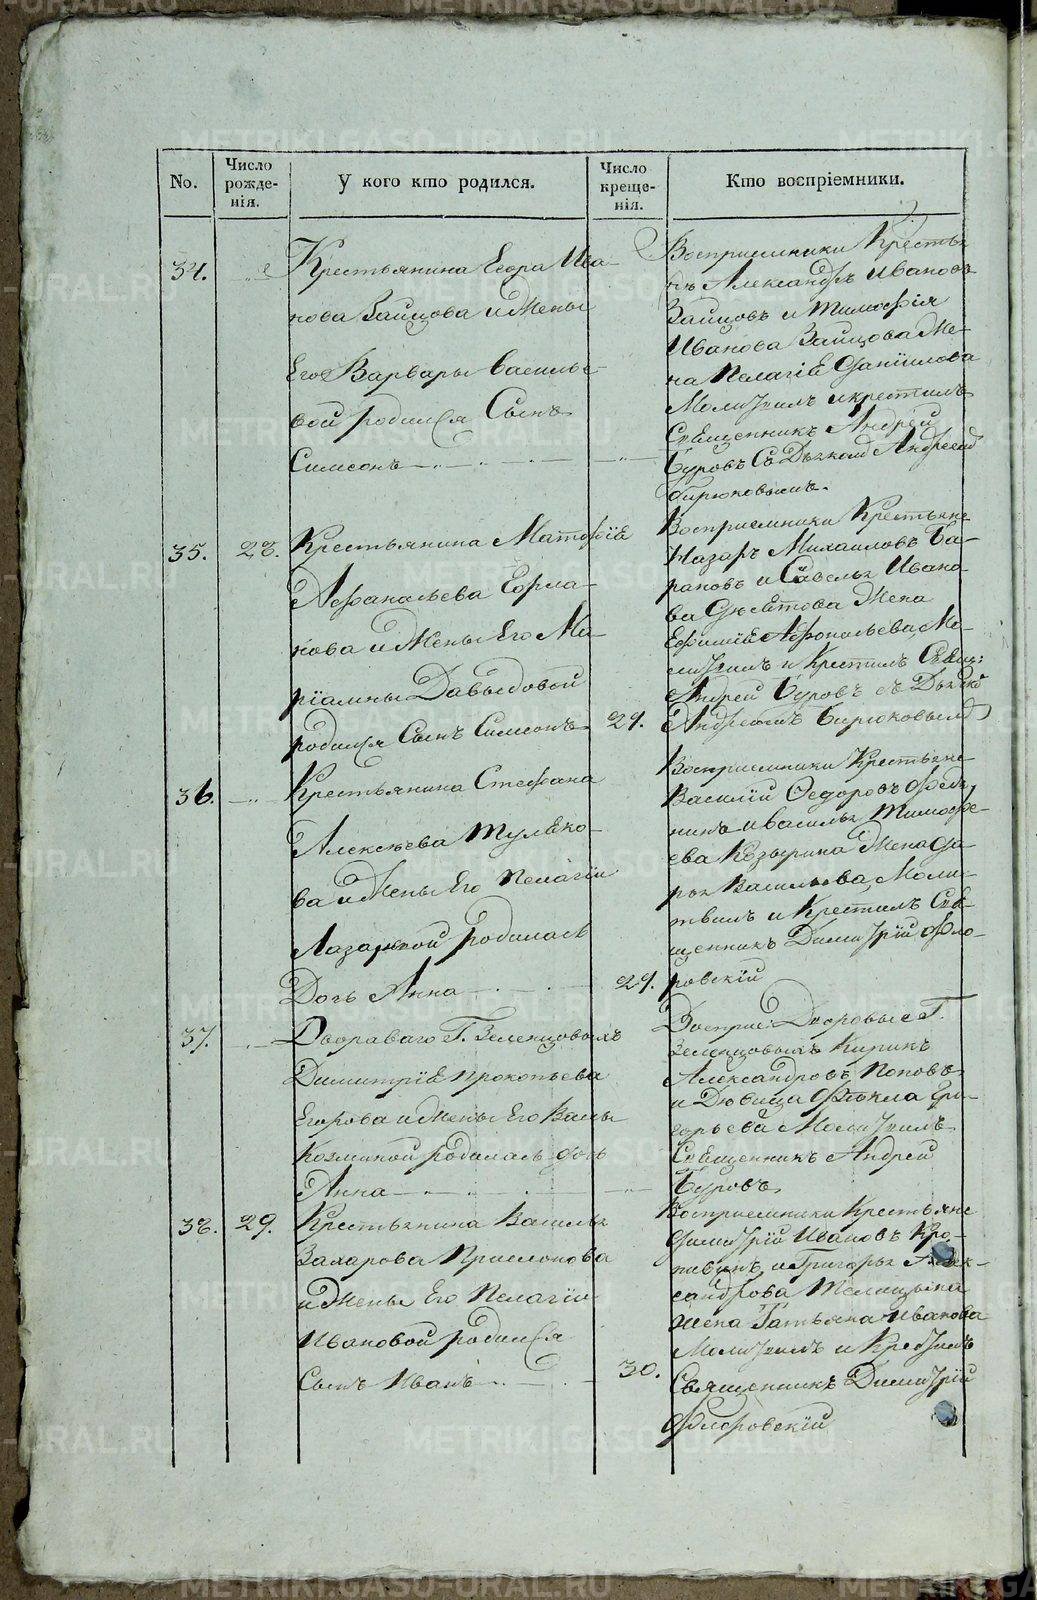 No.
Число рожде-нія.
У кого кто родился.
Число креще-нія.
Кто воспріемники.
34.
Крестьянина Егора Ива-
нова Зайцова и Жены
Его Варвары Василье-
вой родился Сынъ
Симеонъ
Восприемники Кресть
нъ Александръ Ивановъ
Зайцовъ и Тимофія
Иванова Зайцова Же-
на Пелагіѣ Данїилова
Молитвилъ и крестилъ
Священникъ Андрїй
Буровъ Съ Дьчкомъ Андреемъ
Бирюковымъ.
35.
28.
Крестьянина Матофїѣ
Афанасьева Ерма-
кова и Жены Его Ма-
рїамны Давыдовой
родился Сынъ Симеонъ
29.
Восприемники Крестьяне
Назаръ Михаиловъ Ба-
рановъ и Савелья Ивано-
ва Жена
Ефимїѣ Афонасьева Мо-
литвилъ и Крестилъ Свящ:
Андрей Буровъ съ Дьчком
Андреемъ Бирюковымъ
36.
Крестьянина Стефана
Алексѣева Тулѣко-
ва и Жены Его Пелагїи
Лазаревой родилась
Дочь Анна
29.
Восприемники Крестьяне
Василїй Федоровъ
и Василья Тимофе-
ева Козырина Жена Да-
рья Васильева, Моли-
твилъ и Крестилъ Свя-
щенникъ Димитрїй Фло-
ровскїй
37.
Двораваго Г. Зеленцовыхъ
Димитрїѣ Прокопьева
Егорова и Жены Его
Козминой родилась дочь
Анна
Восприе: Дворовые Г.
Зеленцовыхъ Кирикъ
Александровъ Поповъ
и Дѣвица Фекла Гри-
горьева Молитвилъ
Священникъ Андрей
Буровъ
38.
29.
Крестьянина Василья
Захарова
и Жены Его Пелагїи
Ивановой родился
Сынъ Иванъ
30.
Восприемники Крестьяне
Димитрїй Ивановъ Кро-
и Григорья Алек-
сандрова Телицына
Жена Татьяна Иванова
Молитвилъ и Крестилъ
Священникъ Димитрїй
Флоровскїй
METRIKI.GASO-URAL.RU